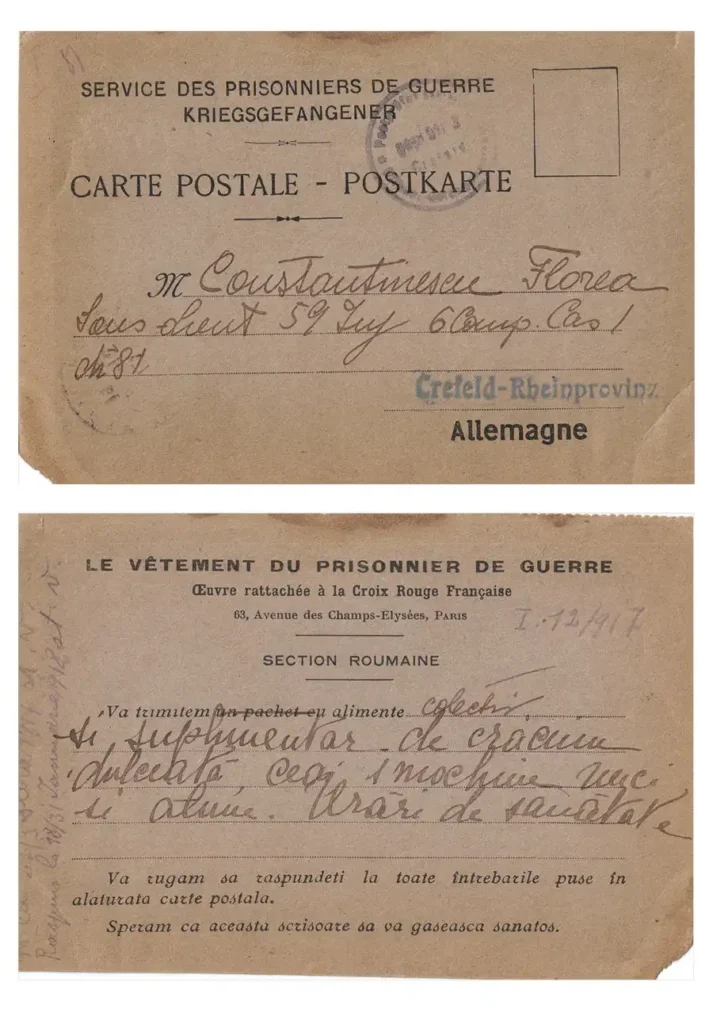 SERVICE DES PRISONNIERS DE GUERRE
KRIEGSGEFANGENER
CARTE POSTALE - POSTKARTE
M Constantinescu Florea
Sous 59 6 Comp. Cas 1
81
Crefeld-Rheinprovinz
Allemagne
LE VÊTEMENT DU PRISONNIER DE GUERRE
Œuvre rattachée à la Croix Rouge Française
63, Avenue des Champs-Elysées, PARIS
I. 12/917
SECTION ROUMAINE
Va trimitem un pachet cu alimente colectiv
si suplimentar de craciun
dulceată, ceai, smochine nuci
si alune. Urări de sanătate
Va rugam sa raspundeti la toate întrebarile puse în
alaturata carte postala.
Speram ca aceasta scrisoare sa va gaseasca sanatos.